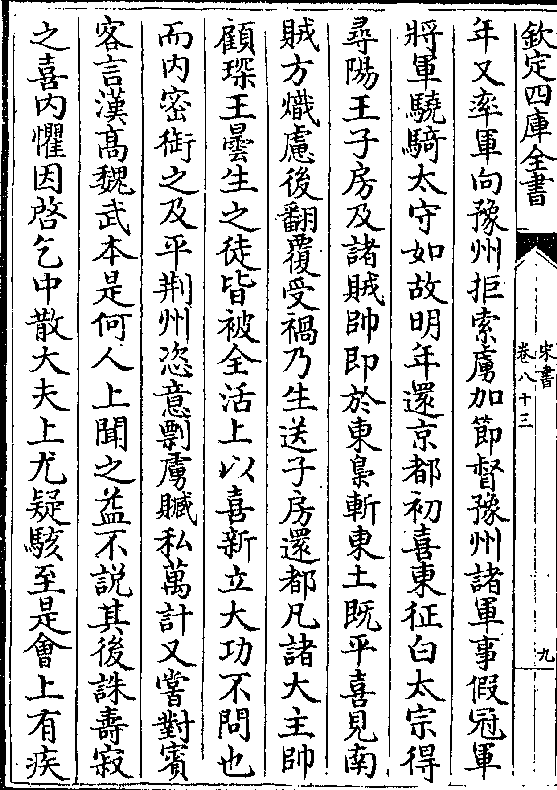 欽定四庫全書
宋書
卷八十三
九
年又率軍向豫州拒索虜加節督豫州諸軍事假冠軍
將軍驍騎太守如故明年還京都初喜東征白太宗得
尋陽王子房及諸賊帥即於東梟斬東土既平喜見南
賊方熾慮後翻覆受禍乃生送子房還都凡諸大主帥
顧琛王曇生之徒皆被全活上以喜新立大功不問也
而内密銜之及平荆州恣意剽虜贓私萬計又嘗對賓
客言漢髙魏武本是何人上聞之益不說其後誅壽寂
之喜内懼因啓乞中散大夫上尤疑駭至是會上有疾